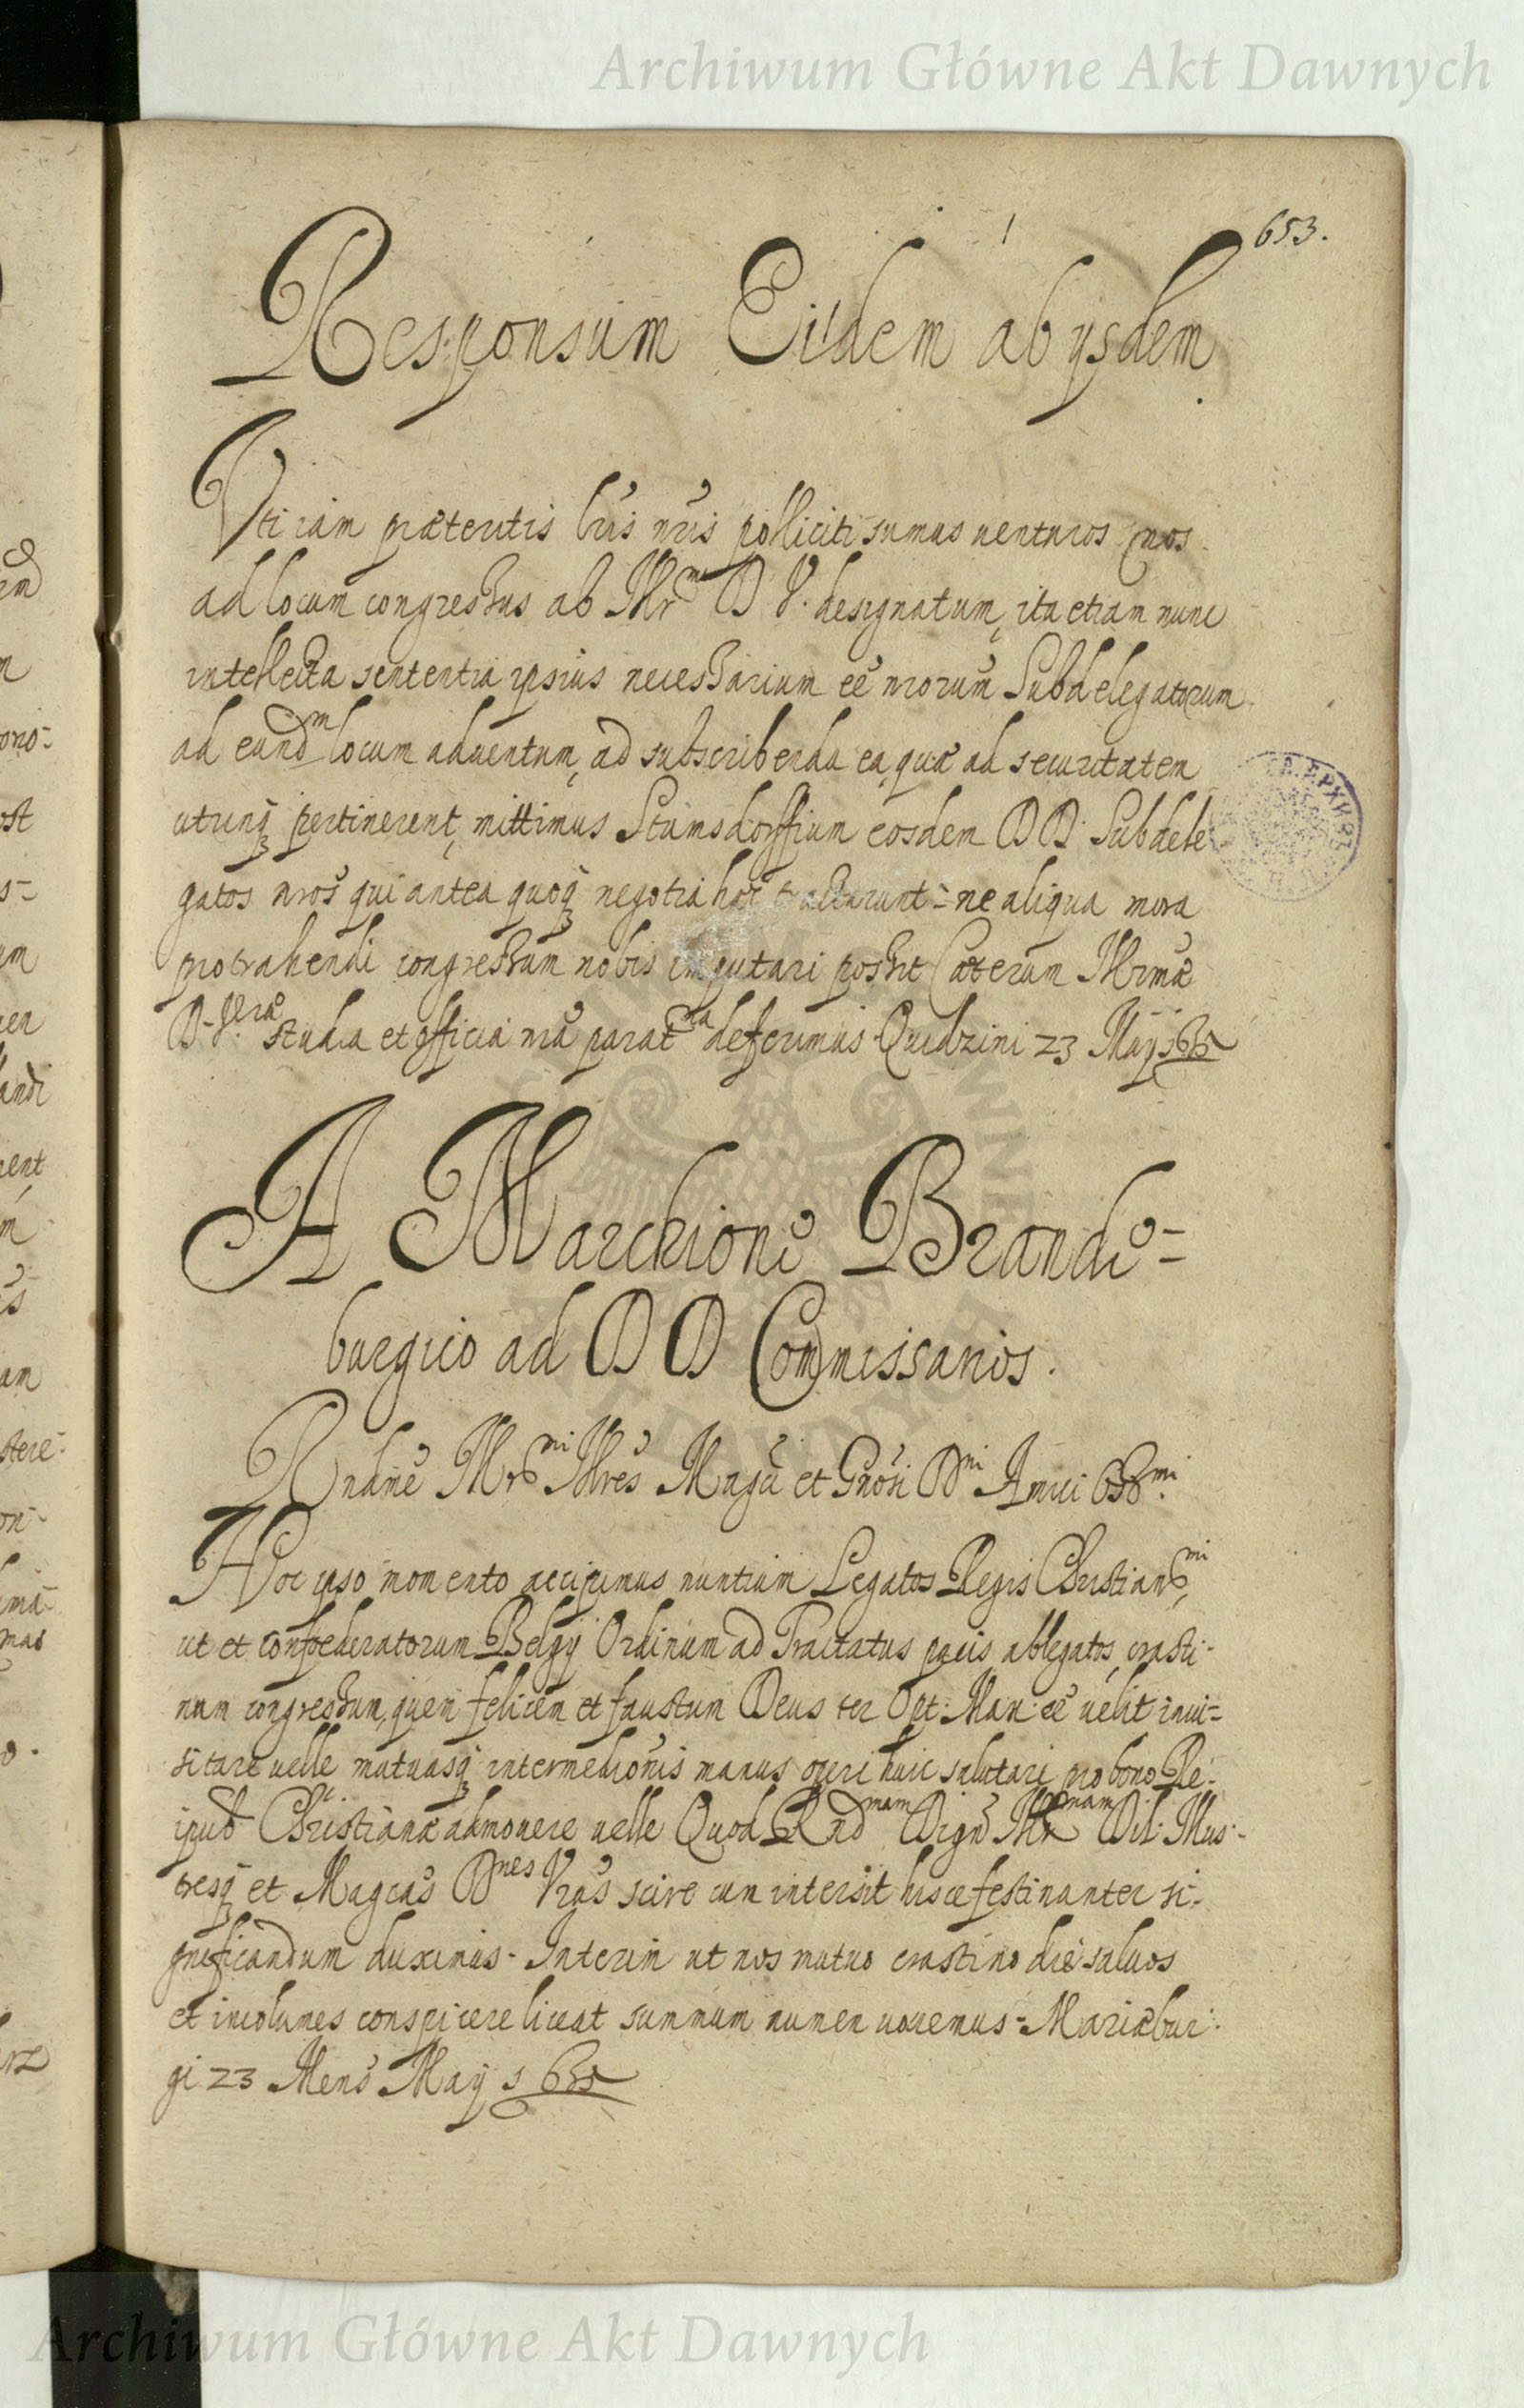 Archiwum Główne Akt Dawnych
653.
Responsum Eidem ab ysdem
Vti iam præteritis lr̃is nr̃is polliciti sumus uenturos nos
ad locum congressus ab Illr̃ma D V. designatum, ita etiam nunc
intellecta sententia ipsius necessarium eẽ nr̃orum Subdelegatorum
ad eundm locum aduentum, ad subscribenda ea, quæ ad securitatem
utrinq; pertinerent, mittimus Stumsdorffium eosdem DD. Subdele
gatos nr̃os qui antea quoq; negotia hæc tractarunt - ne aliqua mora
protrahendi congressum nobis imputari possit Cæterum Illr̃mæ
D. Vræ studia et officia nr̃a paratma deferimus. Quidzini 23 Maij 1635
A Marchione Brande-
burgico ad DD Commissarios.
Rndme Illrmi Illres Magci et Gnosi Dni Amici Obsmi.
Hoc ipso momento accipimus nuntium Legatos Regis Christianmi,
ut et confoederatorum Belgij Ordinum ad Tractatus pacis ablegatos, crasti-
num congressum, quem felicem et faustum Deus ter Opt: Max: eẽ uelit inui-
sitare uelle mutuasq; intermedionis manus operi huic salutari pro bono Re-
ipub Christianæ admouere uelle Quod Rndmam Dign Illrmam Dil: Illus-
tresq; et Magcas Dnes Vras scire cum intersit hisce festinanter si-
gnificandum duximus - Interim ut nos mutuo crastino die saluos
et incolumes conspicere liceat summum numen uouemus - Mariæbur-
gi 23 Mens Maij 1635
Archiwum Główne Akt Dawnych